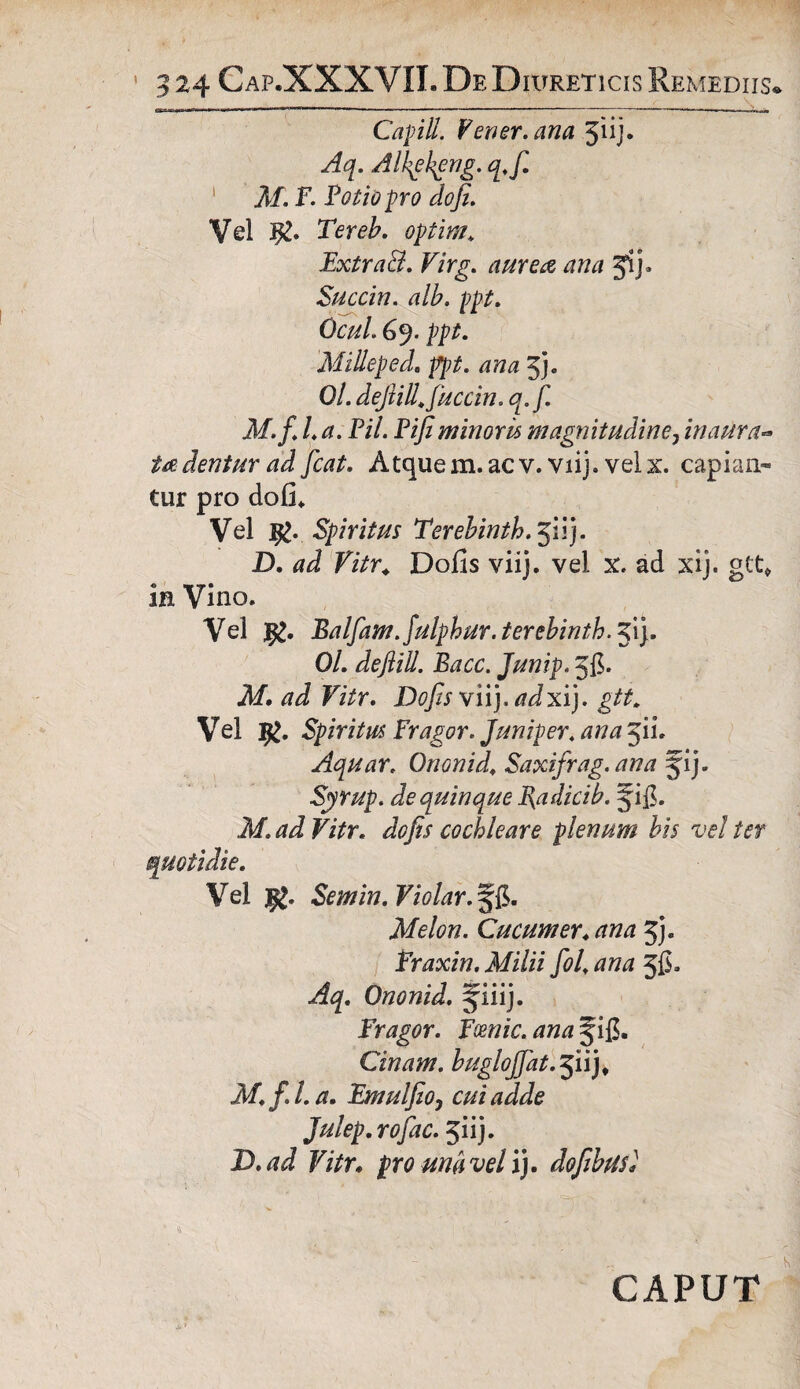 324 CAP.XXXVII. DE DIURETICIS REMEDIIS.
Capill. Vener. ana ʒiij.
Aq. Alkekeng. q.ſ.
M. F. Potio pro doſi.
Vel ℞. Tereb. optim.
Extract. Virg. aureæ ana ʒij.
Succin. alb. ppt.
Ocul. 69. ppt.
Milleped. ppt. ana ʒj.
Ol. deſtill. ſuccin. q. ſ.
M. f. l. a. Pil. Piſi minoris magnitudine, inaura-
tæ dentur ad ſcat. Atque m. ac v. viij. vel x. capian-
tur pro doſi.
Vel ℞. Spiritus Terebinth. ʒiij.
D. ad Vitr. Doſis viij. vel x. ad xij. gtt.
in Vino.
Vel ℞. Balſam. ſulphur. terebinth. ʒij.
Ol. deſtill. Bacc. Junip. ʒß.
M. ad Vitr. Doſis viij. ad xij. gtt.
Vel ℞. Spiritus Fragor. Juniper. ana ʒii.
Aquar. Ononid. Saxifrag. ana ℥ij.
Syrup. de quinque Radicib. ℥iß.
M. ad Vitr. doſis cochleare plenum bis vel ter
quotidie.
Vel ℞. Semin. Violar. ℥ß.
Melon. Cucumer. ana ʒj.
Fraxin. Milii ſol. ana ʒß.
Aq. Ononid. ℥iiij.
Fragor. Fœnic. ana ℥iß.
Cinam. bugloſſat. ʒiij.
M. f. l. a. Emulſio, cui adde
Julep. roſac. ʒiij.
D. ad Vitr. pro unâ vel ij. doſibus.
CAPUT